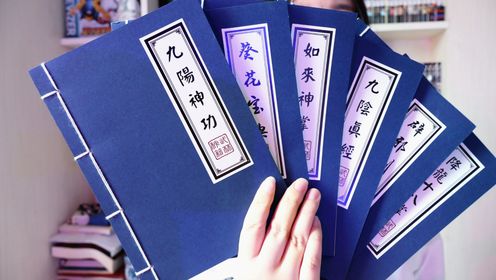 九陽神功
葵花宝典
如來神掌
九陰眞經
辟邪
降龍十八掌